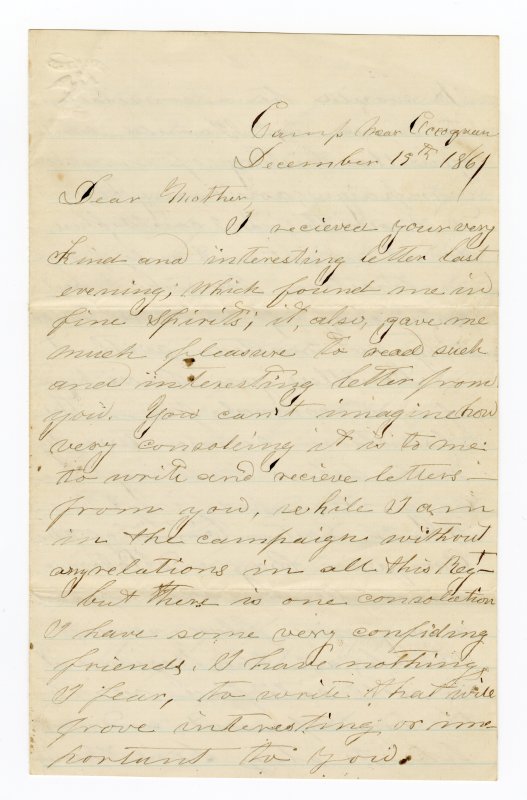 Camp Near Occoquan
December 15th 1861
Dear Mother,
I recieved your very
Kind and interesting letter last
evening; Which found me in
fine Spirits; it, also, gave me
much pleasure to read such
and interesting letter from
you. You can't imagine how
very consoleing it is to me
to write and recieve letters—
from you, while I am
in the campaign without
any relations in all this Regt
but there is one consolation
I have some very confiding
friends. I have nothing,
I fear, to write that will
prove interesting or im
portant to you.